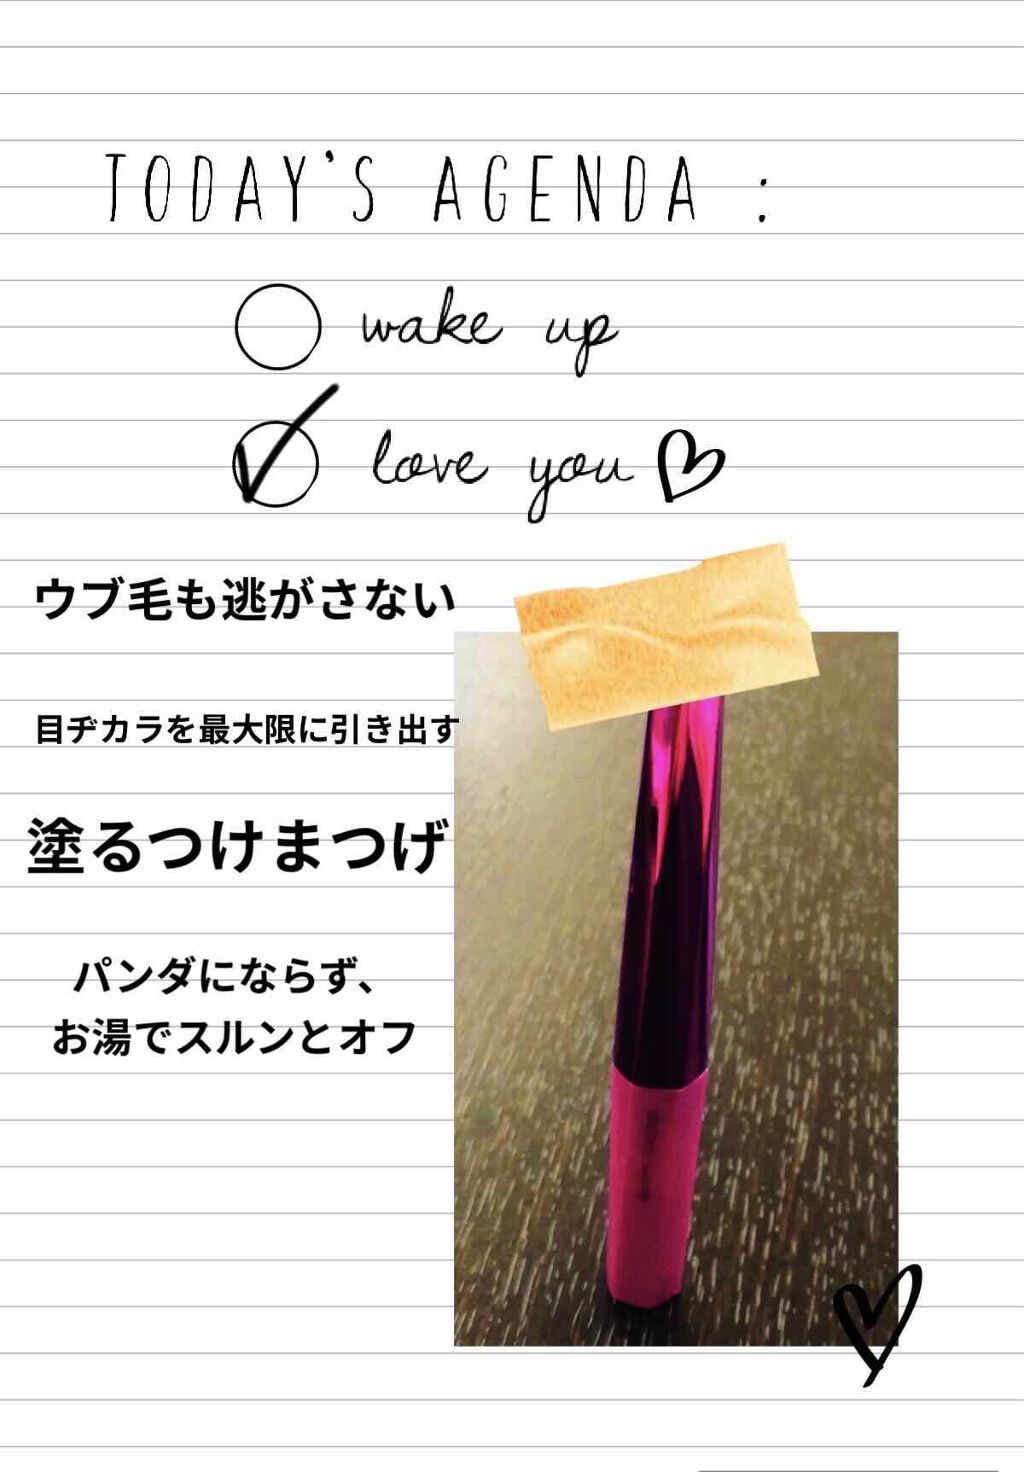 TODAY'S AGENDA :
wake up
love you
ウブ毛も逃がさない
目ヂカラを最大限に引き出す
塗るつけまつげ
パンダにならず、
お湯でスルンとオフ